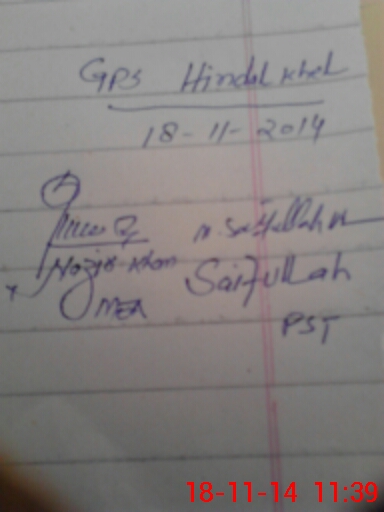 GPS Hindal Khel
18-11-2014
Nazir Khan
MEA
M. Saifullah
Saifullah
PST
18-11-14 11:39